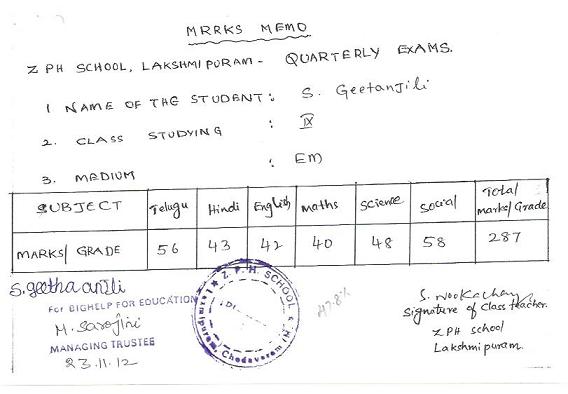 MRRKS MEMO
Z PH SCHOOL, LAKSHMIPURAM - QUARTERLY EXAMS.
1 NAME OF THE STUDENT: S. Geetanjili
2. CLASS STUDYING : IX
3. MEDIUM : EM
SUBJECT Telugu Hindi English maths Science Social Total marks/Grade
MARKS/ GRADE 56 43 42 40 48 58 287
S. geetha anjili
For BIGHELP FOR EDUCATION
M. Sarojini
MANAGING TRUSTEE
23.11.12
Z. P. H. SCHOOL
Laxmipuram, Chodavaram (M)
47.8%
S. Nookachary
Signature of Class teacher.
Z PH School
Lakshmi puram.